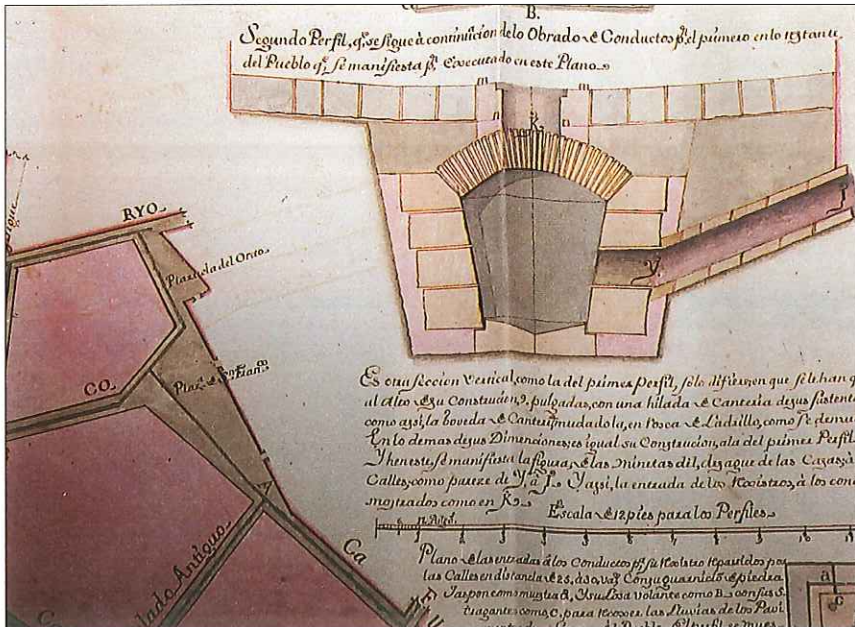 B.
Segundo Perfil, q.e se sigue à continuacion delo Obrado de Conductos p.r el primero en lo restante
del Pueblo q.e se manifiesta p.r Executado en este Plano.
m m
n n
K.
Y.
f.
RYO.
Plazuela del Orno.
CO.
Plaz.a de S.n Fran.co
A
lado Antiguo.
Ca
C.
Es otra seccion Vertical, como la del primer Perfil, solo difieren en que sele han q
al Alto de su Construcion, 9, pulgadas, con una hilada de Canteria de sus sustenta
como assi, la boveda de Canteria mudadola, en rosca de Ladrillo, como se demu
En lo demas de sus Dimenciones, es igual su Construcion, ala del primer Perfil
Y hen este, se manifiesta la figura, de las minetas del, desague de las Cazas, à
Calles, como pareze de Y. à f. Y assi, la entrada de los Rexistros, à los con
mostrados como en K.
Escala de 12 pies para los Perfiles.
1 2 3 4 5 6 7 8 9 10
Plano de las entradas à los Conductos p.r su Rexistro repartidos por
las Calles en distancia de 25, à 30, va.s Con su guarnicion de piedra
Jaspon como muestra A, Y su Losa volante como B. con sus S.
tragantes como, C, para recoxer las Lluvias de los Pavi
a
c